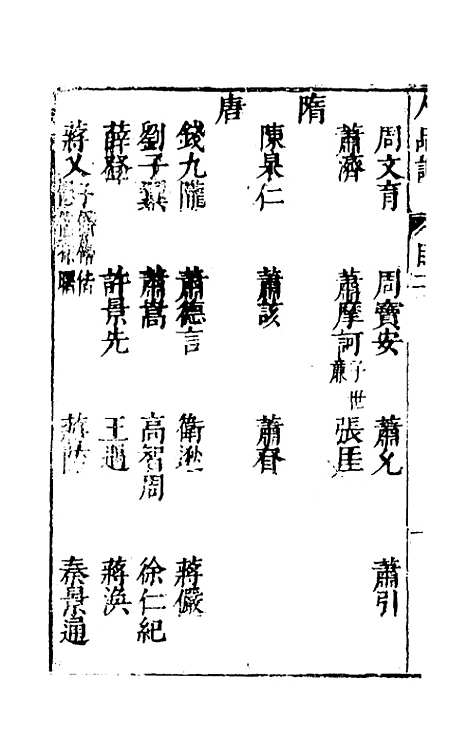 人品記 卷目二
周文育 周寶安 蕭允 蕭引
蕭濟 蕭摩訶 子世廉 張匡
隋
陳杲仁 蕭該 蕭㫪
唐
錢九隴 蕭德言 衛 蔣儼
劉子翼 蕭嵩 高智周 徐仁紀
薛登 許景先 王 蔣洟
蔣乂 子係 伸 偕 曙 蔣 秦景通